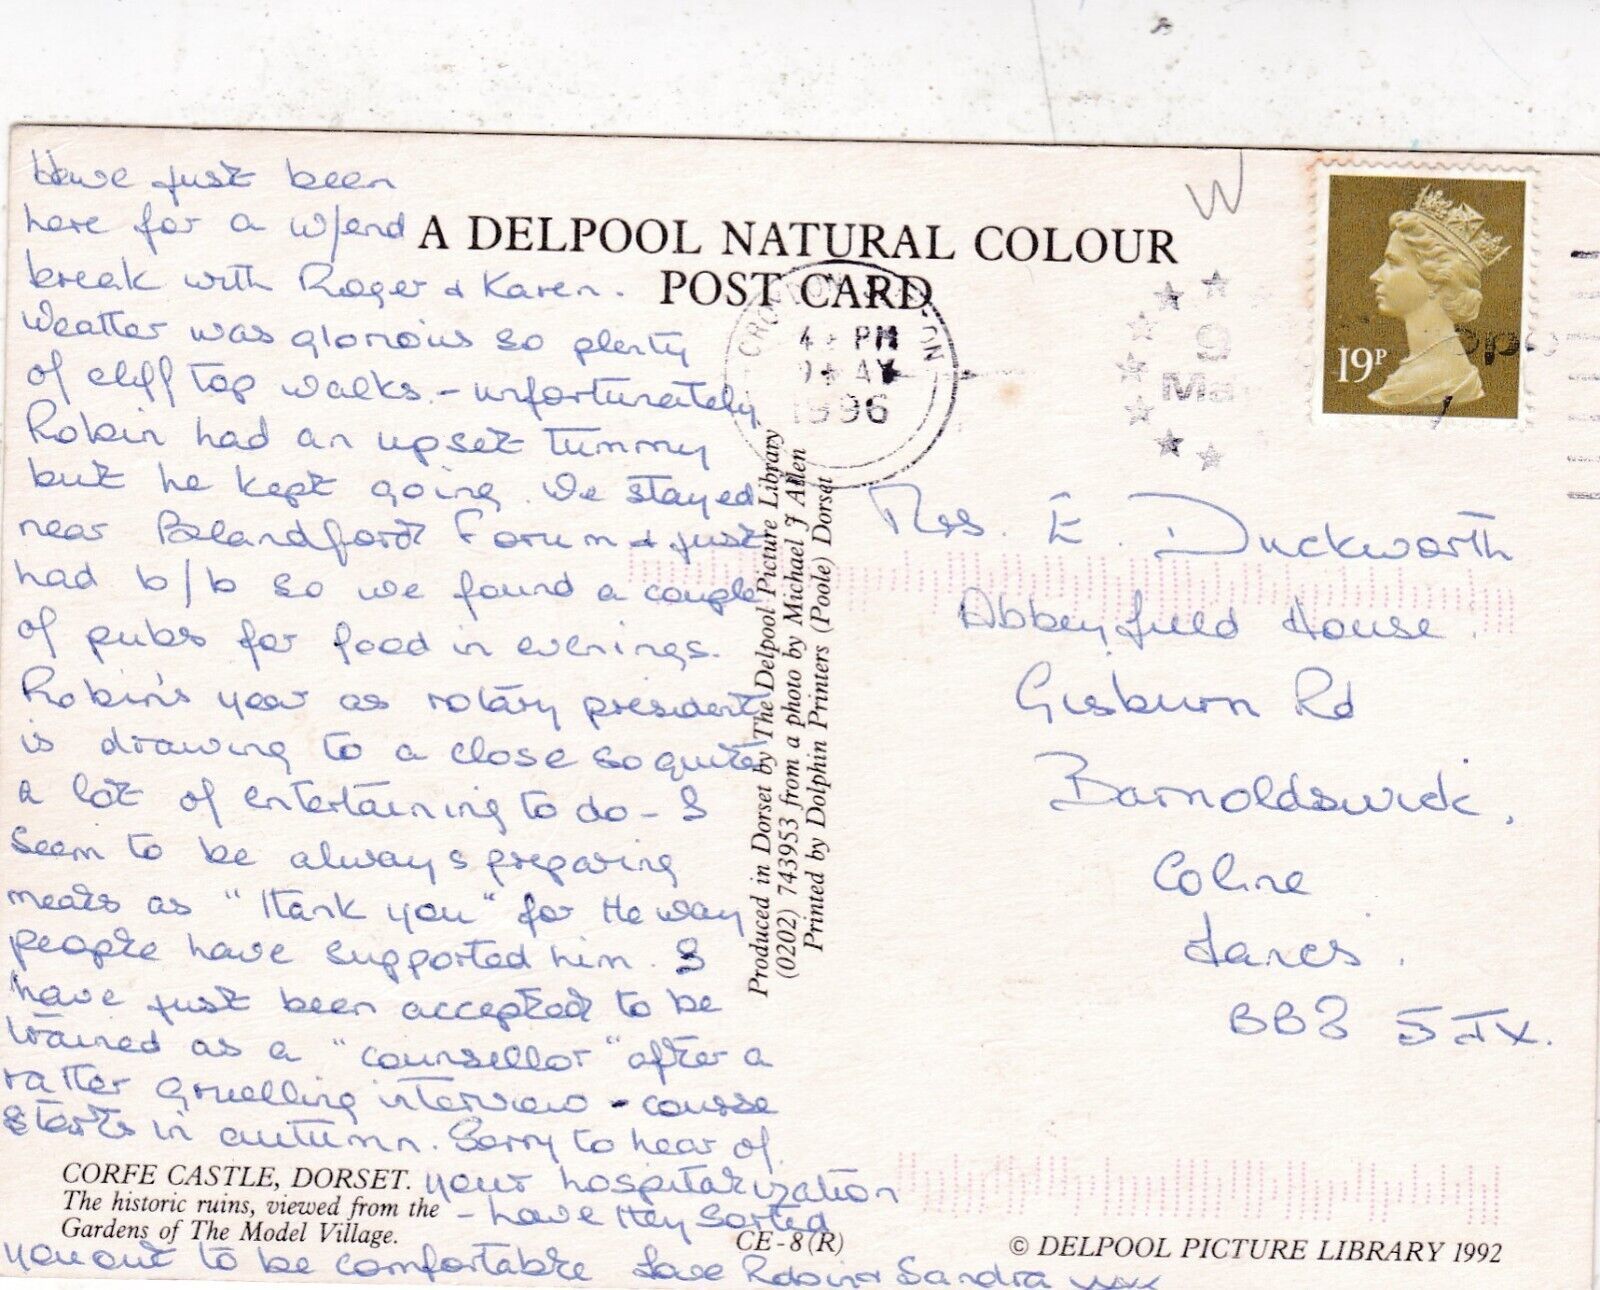 Have just been
here for a w/end
break with Roger & Karen.
Weather was glorious so plenty
of cliff top walks - unfortunately
Robin had an upset tummy
but he kept going. We stayed
near Blandford Forum & just
had b/b so we found a couple
of pubs for food in evenings.
Robin's year as rotary president
is drawing to a close so quite
a lot of entertaining to do - I
seem to be always preparing
meals as "thank you" for the way
people have supported him. I
have just been accepted to be
trained as a "counsellor" after a
rather gruelling interview - course
starts in autumn. Sorry to hear of
your hospitalization
- have they sorted
you out to be comfortable Love Robin & Sandra xxx
A DELPOOL NATURAL COLOUR
POST CARD
CROYDON
4 PM
9 MAY
1996
9
May
W
19P
Mrs. E. Duckworth
Abbeyfield House.
Gisburn Rd
Barnoldswick,
Colne
Lancs.
BB8 5JX.
Produced in Dorset by The Delpool Picture Library
(0202) 743953 from a photo by Michael J Allen
Printed by Dolphin Printers (Poole) Dorset
CORFE CASTLE, DORSET.
The historic ruins, viewed from the
Gardens of The Model Village.
CE-8(R)
© DELPOOL PICTURE LIBRARY 1992